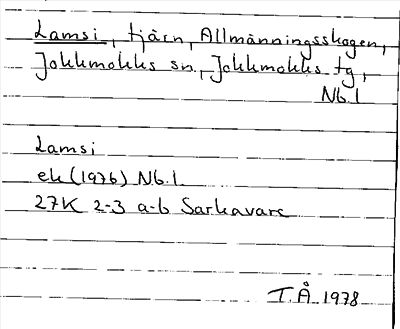 Lamsi, tjärn, Allmänningsskogen,
Jokkmokks sn, Jokkmokks tg,
Nb.l
Lamsi
ek (1976) Nb.l.
27K 2-3 a-b Sarkavare
T.Å. 1978